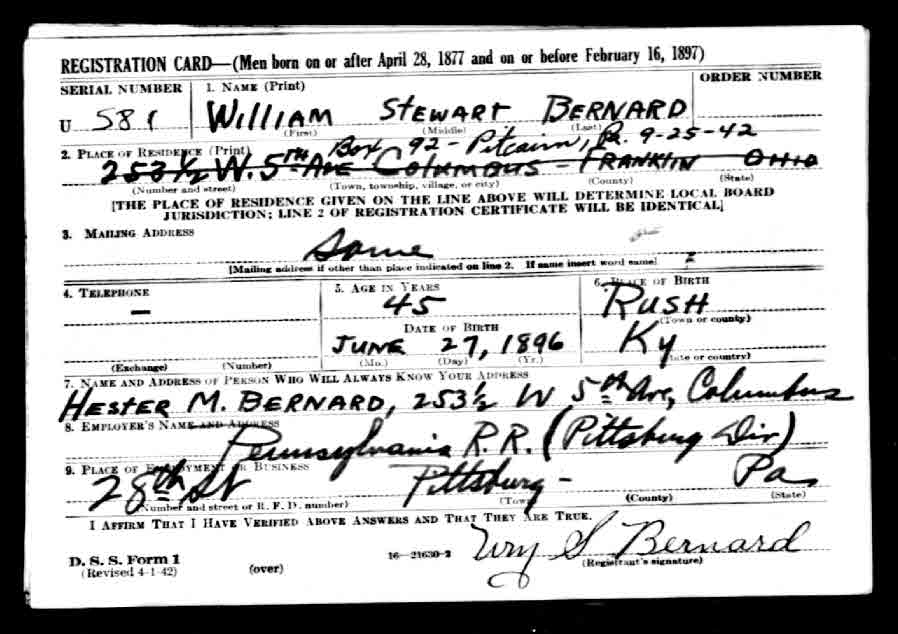 REGISTRATION CARD—(Men born on or after April 28, 1877 and on or before February 16, 1897)
SERIAL NUMBER 1. NAME (Print) ORDER NUMBER
U 581 WILLIAM STEWART BERNARD
(First) (Middle) (Last)
Box 92 - Pitcairn, Pa. 9-25-42
2. PLACE OF RESIDENCE (Print)
253½ W. 5TH AVE COLUMBUS - FRANKLIN OHIO
(Number and street) (Town, township, village, or city) (County) (State)
[THE PLACE OF RESIDENCE GIVEN ON THE LINE ABOVE WILL DETERMINE LOCAL BOARD
JURISDICTION; LINE 2 OF REGISTRATION CERTIFICATE WILL BE IDENTICAL]
3. MAILING ADDRESS
Same
[Mailing address if other than place indicated on line 2. If same insert word same]
4. TELEPHONE 5. AGE IN YEARS 6. PLACE OF BIRTH
— 45 RUSH
(Town or county)
DATE OF BIRTH
JUNE 27, 1896 Ky
(Exchange) (Number) (Mo.) (Day) (Yr.) (State or country)
7. NAME AND ADDRESS OF PERSON WHO WILL ALWAYS KNOW YOUR ADDRESS
HESTER M. BERNARD, 253½ W 5th Ave, Columbus
8. EMPLOYER'S NAME AND ADDRESS
Pennsylvania R.R. (Pittsburg Div)
9. PLACE OF EMPLOYMENT OR BUSINESS
28th St Pittsburg - Pa
(Number and street or R. F. D. number) (Town) (County) (State)
I AFFIRM THAT I HAVE VERIFIED ABOVE ANSWERS AND THAT THEY ARE TRUE.
D. S. S. Form 1 16—21630-2 Wm S Bernard
(Revised 4-1-42) (over) (Registrant's signature)